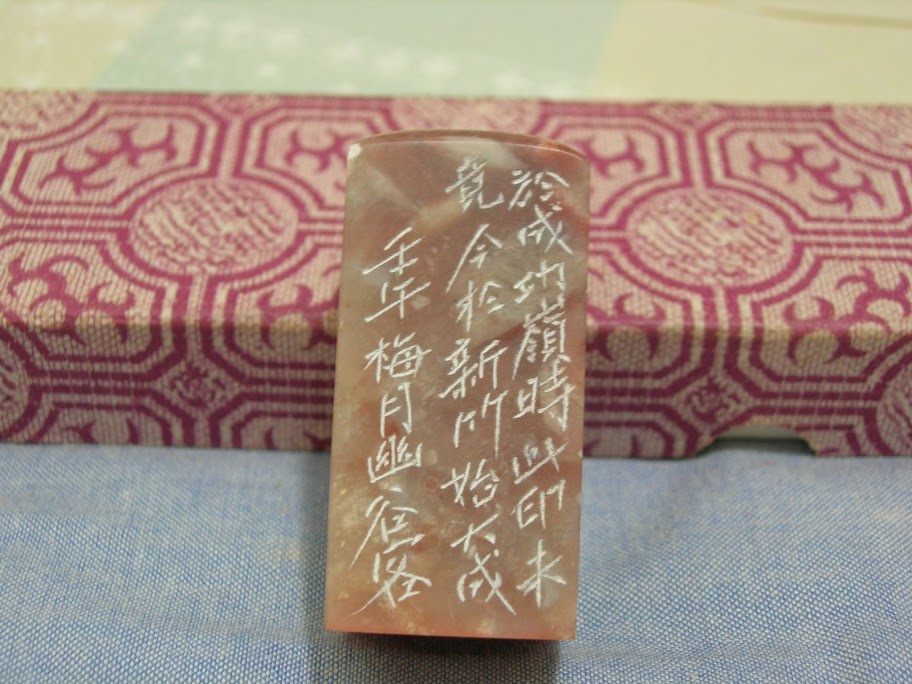 於成功嶺時此印未
竟今於新竹始大成
壬午梅月幽谷客